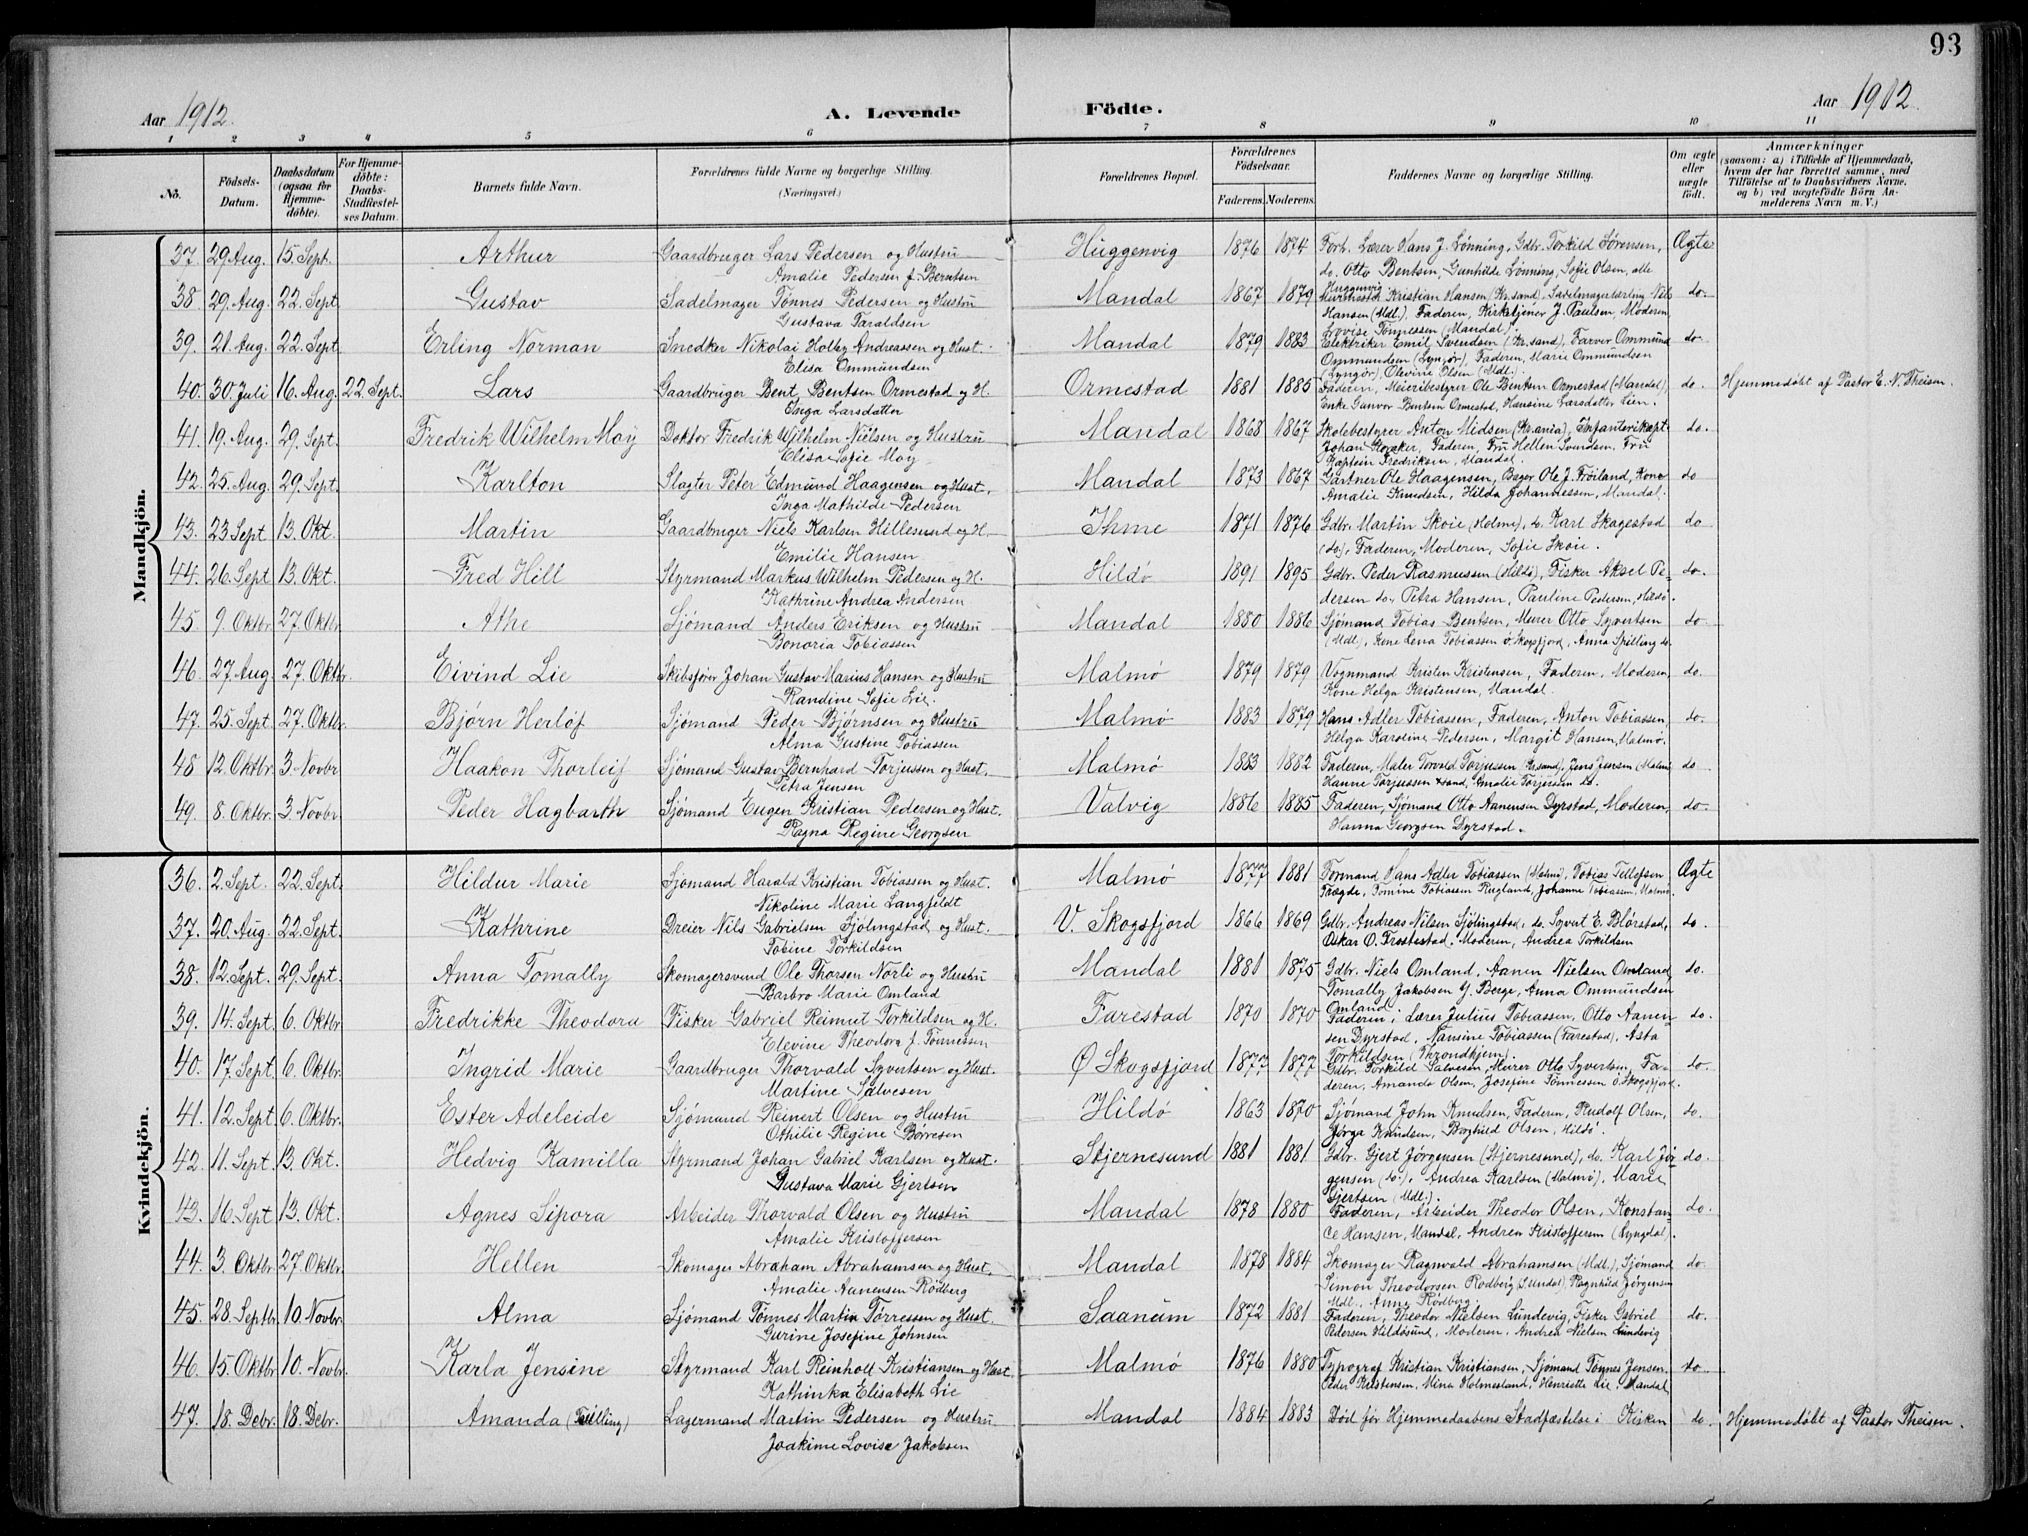 93
Aar 1912. A. Levende Födte. Aar 1912.
1 2 3 4 5 6 7 8 9 10 11
No. Födsels-Datum. Daabsdatum (ogsaa for Hjemme-döbte). For Hjemme-döbte: Daabs-Stadfæstel-ses Datum. Barnets fulde Navn. Forældrenes fulde Navne og borgerlige Stilling. (Næringsvei.) Forældrenes Bopæl. Forældrenes Födselsaar. Faderens. Moderens. Faddernes Navne og borgerlige Stilling. Om ægte eller uægte födt. Anmærkninger (saasom: a) i Tilfælde af Hjemmedaab, hvem der har forrettet samme, med Tilföielse af to Daabsvidners Navne, og b) ved uægtefödte Börn An-melderens Navn m. V.)
Mandkjön.
37. 29 Aug. 15. Sept. Arthur Gaardbruger Lars Pedersen og Hustru Huggenvig 1876 1874 Forh. Lærer Hans J. Lønning, Gdbr. Torkild Sørensen, Ægte
Amalie Pedersen f. Berntsen do. Otto Bentsen, Gunhilde Lønning, Sofie Olsen, alle
Huggenvig
38. 29. Aug. 22. Sept. Gustav Sadelmager Tønnes Pedersen og Hustru Mandal 1867 1879 Kristian Hansen (Kr.sand), Sadelmagerlærling Nils do.
Gustava Taraldsen Hansen (Mdl.), Faderen, Kirketjener J. Paulsen, Moderen
Lovise Tønnessen (Mandal)
39. 21. Aug. 22. Sept. Erling Norman Snedker Nikolai Holby Andreassen og Hust. Mandal 1879 1883 Elektriker Emil Svendsen (Kr.sand), Farver Ommund do
Elisa Ommundsen Ommundsen (Lyngør), Faderen, Marie Ommundsen
(Lyngør), Olevine Olsen (Mdl.)
40. 30. Juli 16. Aug. 22. Sept. Lars Gaardbruger Bent Bentsen Ormestad og H. Ormestad 1881 1885 Faderen, Meieribestyrer Ole Bentsen Ormestad (Mandal), do. Hjemmedøbt af Pastor E. N. Theisen.
Inga Larsdatter Enke Gunvor Bentsen Ormestad, Hansine Larsdatter Lien.
41. 19. Aug. 29. Sept. Fredrik Wilhelm Moy Doktor Fredrik Wilhelm Nielsen og Hustru Mandal 1868 1867 Skolebestyrer Anton Midsen (Kr.ania), Infanterikapt. do.
Elisa Sofie Moy Johan Faderen, Fru Hellen Svendsen, Fru
Kaptein Fredriksen, Mandal.
42. 25. Aug. 29. Sept. Karlton Slagter Peter Edmund Haagensen og Hust. Mandal 1873 1867 Gartner Ole Haagensen, Bager Ole J. Frøiland, Kone do
Inga Mathilde Pedersen Amalie Knudsen, Hilda Johannessen, Mandal.
43. 23 Sept 13. Okt. Martin Gaardbruger Niels Karlsen Hillesund og H. Ihme 1871 1876 Gdbr. Martin Skoie (Holme), do. Karl Skagestad do
Emilie Hansen (do), Faderen, Moderen, Sofie Skoie.
44. 26. Sept 13. Okt. Fred Hill Styrmand Markus Wilhelm Pedersen og H. Hildø 1891 1895 Gdbr. Peder Rasmussen (Hildø), Fisker Aksel Pe- do.
Kathrine Andrea Andersen dersen do, Petra Hansen, Pauline Pedersen, Hildø.
45. 9. Oktbr 27. Oktbr Athe Sjømand Anders Eriksen og Hustru Mandal 1880 1886 Sjømand Tobias Bentsen, Murer Otto Syvertsen do.
Bonoria Tobiassen (Mdl), Kone Lena Tobiassen Ø. Skogsfjord, Anna Spilling do.
46. 27. Aug. 27. Oktbr. Eivind Lie Skibsfører Johan Gustav Marius Hansen og Hustru Malmø 1879 1879 Vognmand Kristen Kristensen, Faderen, Moderen, do.
Randine Sofie Lie. Kone Helga Kristensen, Mandal.
47. 25. Sept. 27. Oktbr. Bjørn Herløf Sjømand Peder Bjørnsen og Hustru Malmø 1883 1879 Hans Adler Tobiassen, Faderen, Anton Tobiassen, do.
Alma Gustine Tobiassen Helga Karoline Pedersen, Margit Hansen, Malmø.
48 12. Oktbr. 3. Novbr Haakon Thorleif Sjømand Gustav Bernhard Torjussen og Hust. Malmø 1883 1882 Faderen, Maler Torvald Torjussen (Kr.sand), Jens Jensen (Malmø do
Petra Jensen Hanne Torjussen Kr.sand, Amalie Torjussen do.
49. 8. Oktbr. 3. Novbr Peder Hagbarth Sjømand Eugen Kristian Pedersen og Hust. Valvig 1886 1885 Faderen, Sjømand Otto Aanensen Dyrstad, Moderen, do.
Ragna Regine Georgsen Hanna Georgsen Dyrstad.
Kvindekjön.
36. 2. Sept. 22. Sept. Hildur Marie Sjømand Harald Kristian Tobiassen og Hust. Malmø 1877 1881 Formand Hans Adler Tobiassen (Malmø), Tobias Tellefsen Ægte
Nikoline Marie Langfeldt Tregde, Tomine Tobiassen Rugland, Johanne Tobiassen, Malmø.
37. 20. Aug. 22. Sept. Kathrine Dreier Nils Gabrielsen Sjølingstad og Hust. V. Skogsfjord 1866 1869 Gdbr. Andreas Nilsen Sjølingstad, do. Syvert E. Blørstad, do.
Tobine Torkildsen Oskar O. Frostestad, Moderen, Andrea Torkildsen
38. 12. Sept. 29. Sept. Anna Tomally Skomagersvend Ole Thorsen Nørli og Hustru Mandal 1881 1875 Gdbr. Niels Omland, Aanen Nielsen Omland do.
Barbro Marie Omland Tomally Jakobsen Y. Berge, Anna Ommundsen
Omland
39. 14. Sept. 6. Oktbr. Fredrikke Theodora Fisker Gabriel Reimut Torkildsen og H. Farestad 1870 1870 Faderen, Lærer Julius Tobiassen, Otto Aanen- do.
Elevine Theodora J. Tønnessen sen Dyrstad, Nansine Tobiassen (Farestad), Asta
Torkildsen (Throndhjem).
40. 17. Sept. 6. Oktbr. Ingrid Marie Gaardbruger Thorvald Syvertsen og Hust. Ø Skogsfjord 1877 1877 Gdbr. Torkild Salvesen, Murer Otto Syvertsen, Fa- do.
Martine Salvesen deren, Amanda Olsen, Josefine Tønnessen Ø. Skogsfjord.
41. 12. Sept 6. Oktbr. Ester Adeleide Sjømand Reinert Olsen og Hustru Hildø 1863 1870 Sjømand John Knudsen, Faderen, Rudolf Olsen, do.
Othilie Regine Børresen Jørga Knudsen, Borghild Olsen, Hildø.
42. 11. Sept 13. Okt. Hedvig Kamilla Styrmand Johan Gabriel Karlsen og Hust. Stjernesund 1881 1881 Gdbr. Gjert Jørgensen (Stjernesund), do. Karl Jør- do.
Gustava Marie Gjertsen gensen (do.), Andrea Karlsen (Malmø), Marie
Gjertsen (Mdl.).
43. 16. Sept 13. Okt. Agnes Sipora Arbeider Thorvald Olsen og Hustru Mandal 1878 1880 Faderen, Arbeider Theodor Olsen, Konstan- do.
Amalie Kristoffersen ce Hansen, Mandal, Andrea Kristoffersen (Lyngdal).
44. 3. Oktbr 27. Oktbr. Hellen Skomager Abraham Abrahamsen og Hust. Mandal 1878 1884 Skomager Ragnvald Abrahamsen (Mdl.), Sjømand do.
Amalie Aanensen Rødberg Simon Theodorsen Rødberg (S.undal) Ragnhild Jørgensen
Mdl., Anna Rødberg.
45. 28. Septbr. 10. Novbr. Alma Sjømand Tønnes Martin Tørressen og Hust. Saanum 1872 1881 Faderen, Theodor Nielsen Lundevig, Fisker Gabriel do.
Gurine Josefine Johnsen Pedersen Hildøsund, Moderen, Andrea Nielsen Lundevig
46. 15. Oktbr. 10. Novbr. Karla Jensine Styrmand Karl Reinholt Kristiansen og Hust. Malmø 1876 1880 Typograf Kristian Kristiansen, Sjømand Tønnes Jensen, do.
Kathinka Elisabeth Lie Peder Kristensen, Mina Holmesland, Henriette Lie, Mandal
47. 18. Debr. 18. Debr. Amanda (Tvilling) Lagermand Martin Pedersen og Hustru Mandal 1884 1883 Død før Hjemmedaabens Stadfæstelse i Kirken do. Hjemmedøbt af Pastor Theisen.
Joakime Lovise Jakobsen